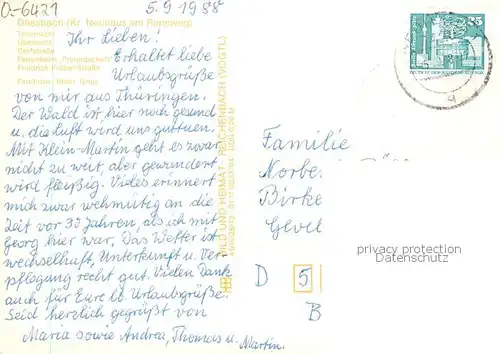 O-6421
5.9.1988
Bliesbach (Kr. Neuhaus am Rennweg)
Teilansicht
Dorfstraße
Ferienheim "Freundschaft"
Friedrich-Fröbel-Straße
Ihr Lieben!
Erhaltet liebe
Urlaubsgrüße
von mir aus Thüringen.
Der Wald ist hier noch gesund
u. die Luft wird uns guttuen.
Mit Klein-Martin geht es zwar
nicht zu weit, aber gewandert
wird fleißig. Vieles erinnert
mich zwar wehmütig an die
Zeit vor 30 Jahren, als ich mit
Georg hier war. Das Wetter ist
wechselhaft, Unterkunft u. Ver-
pflegung recht gut. Vielen Dank
auch für Eure lb. Urlaubsgrüße.
Seid herzlich gegrüßt von
Maria sowie Andrea, Thomas u. Martin.
BILD UND HEIMAT REICHENBACH (VOGTL)
25
Familie
Norbe
Birke
Gevel
D 5
B
privacy protection
Datenschutz